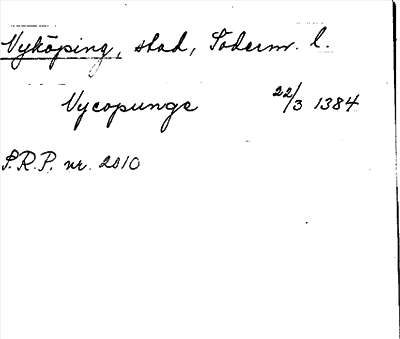 Nyköping, stad, Söderm. l.
Nycopunge 22/3 1384
S.R.P. nr. 2010